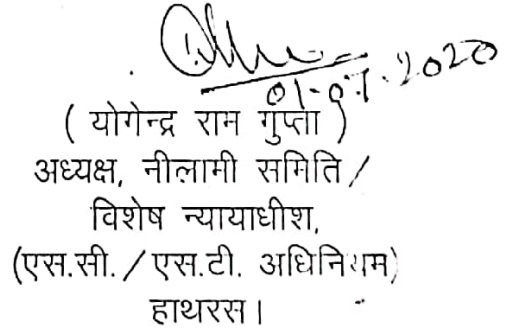 01-07-2020
( योगेन्द्र राम गुप्ता )
अध्यक्ष, नीलामी समिति /
विशेष न्यायाधीश,
(एस.सी. / एस.टी. अधिनियम)
हाथरस।